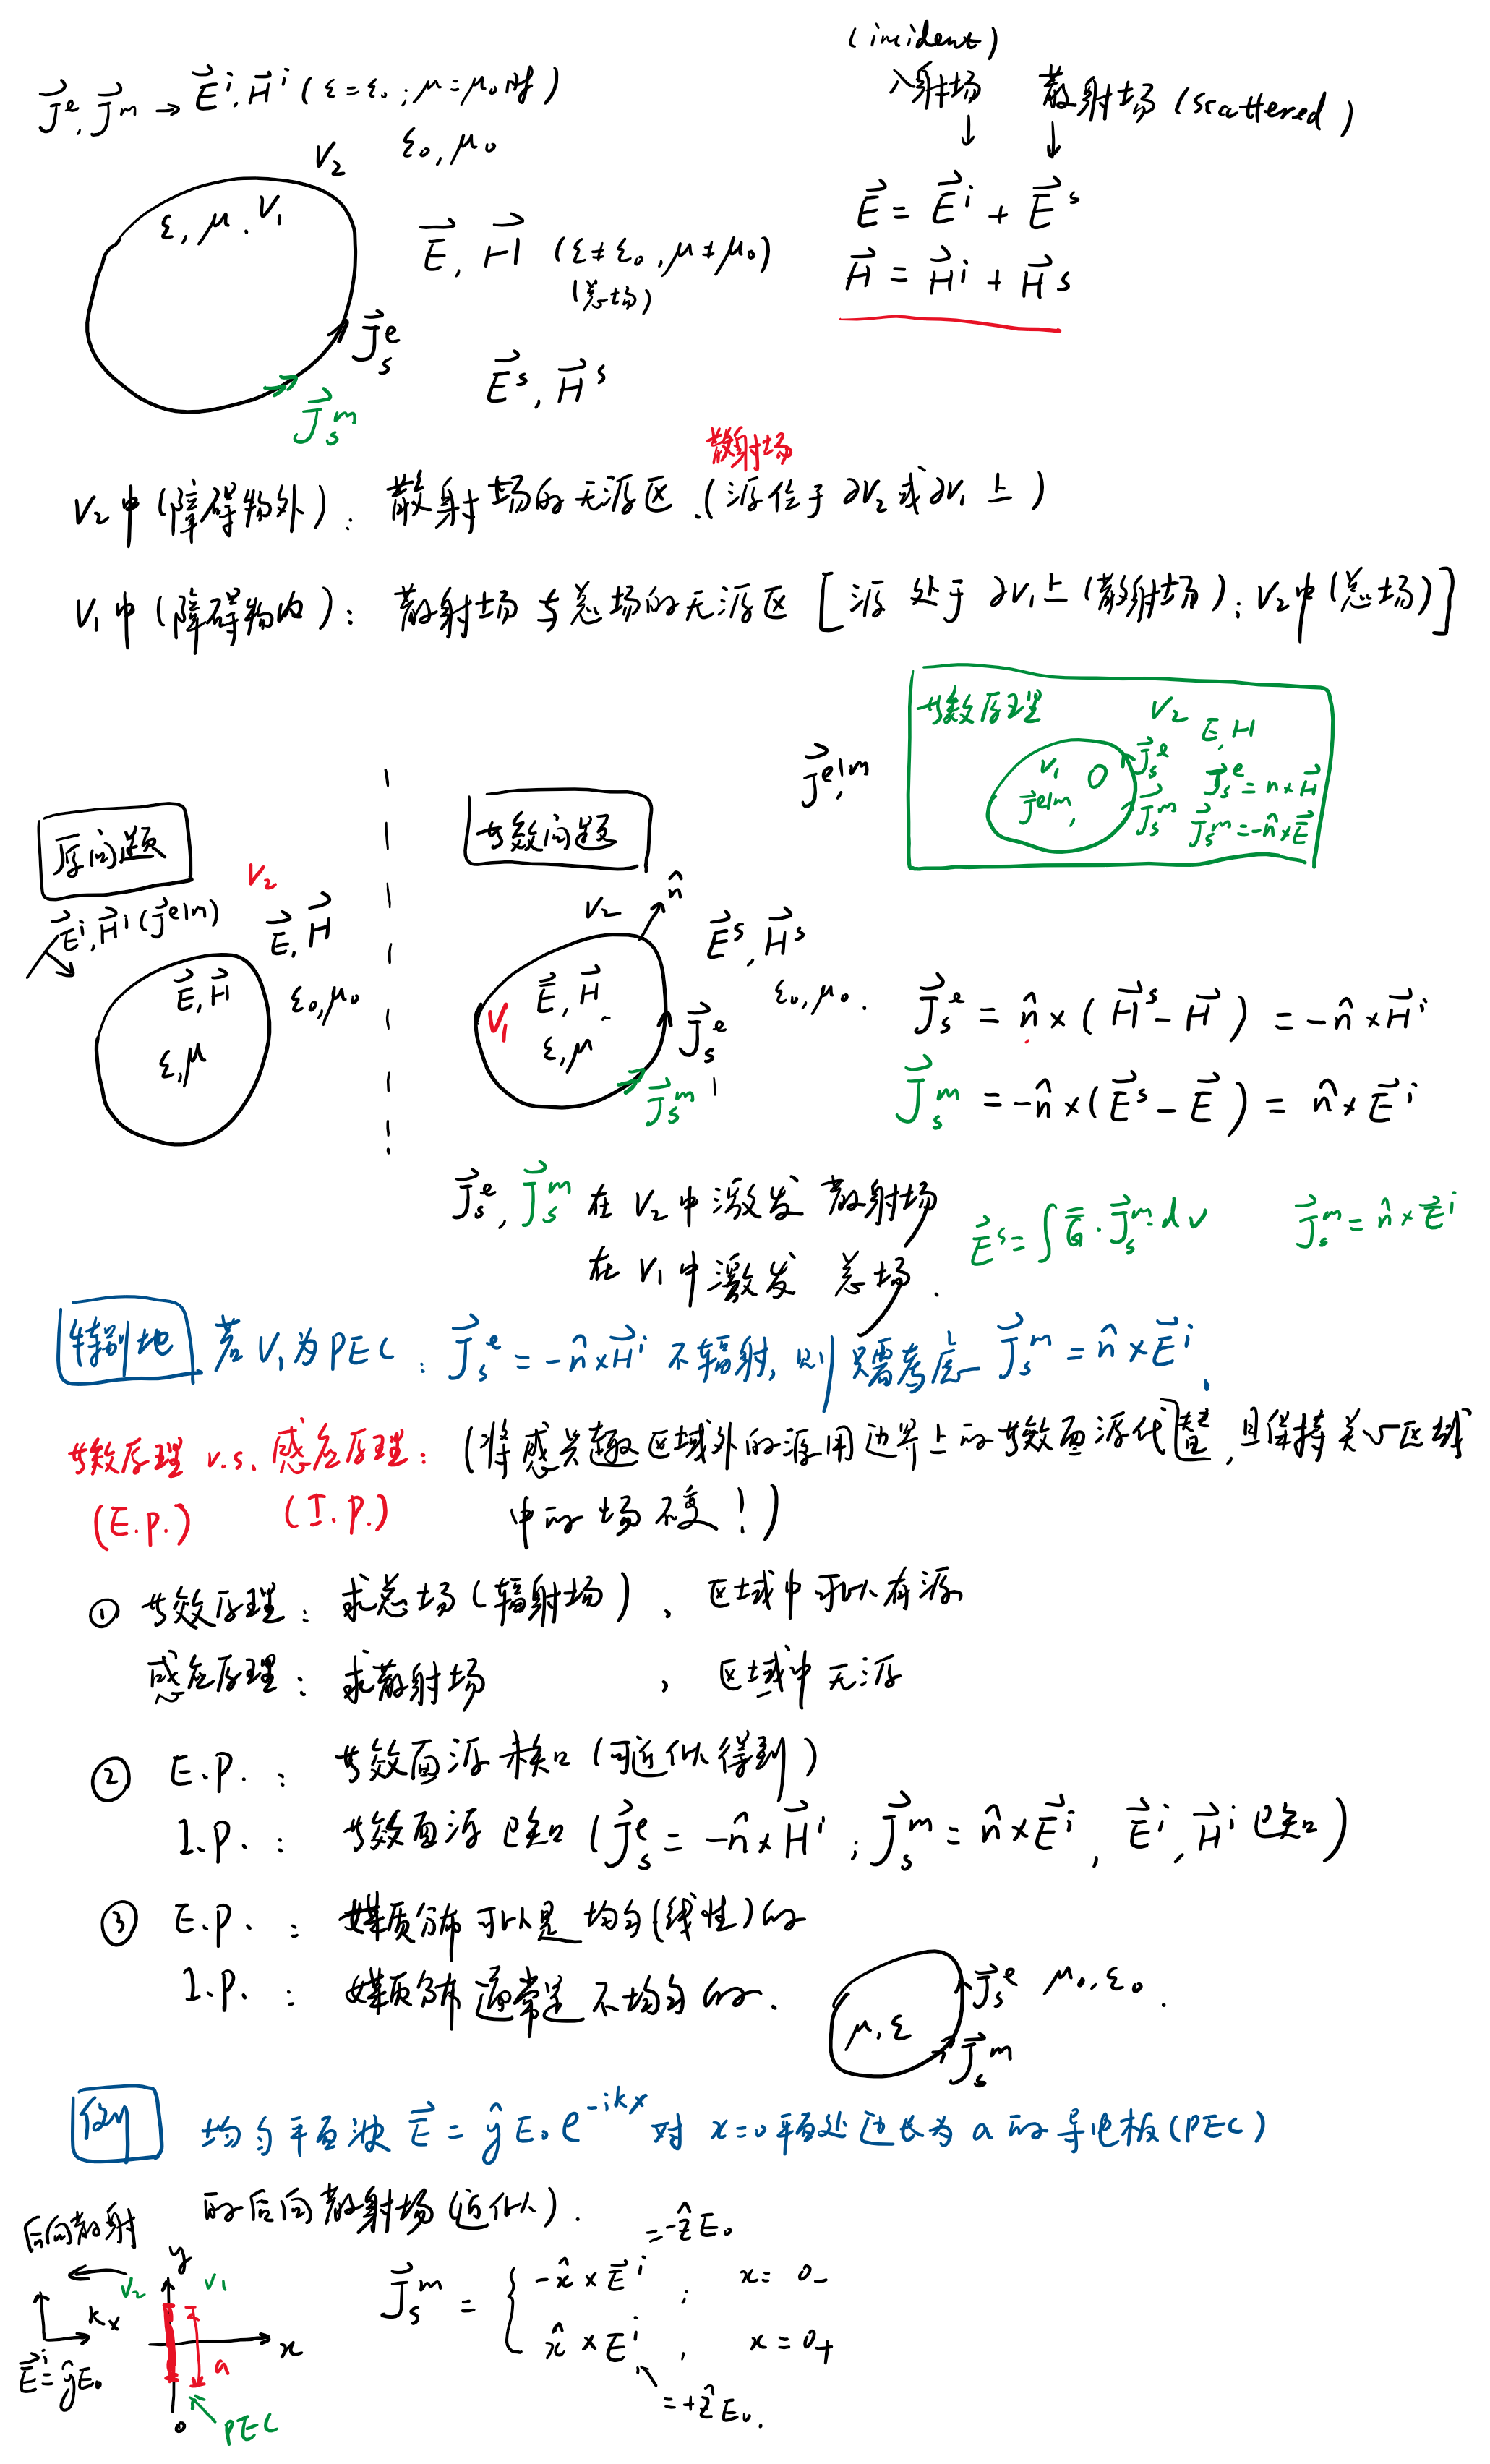 (incident)
入射场 散射场 (scattered)
↓ ↓
J⃗ᵉ, J⃗ᵐ → E⃗ⁱ, H⃗ⁱ (ε=ε₀; μ=μ₀时)
V₂ ε₀, μ₀
ε, μ. V₁
E⃗, H⃗ (ε≠ε₀, μ≠μ₀)
(总场)
E⃗ = E⃗ⁱ + E⃗ˢ
H⃗ = H⃗ⁱ + H⃗ˢ
J⃗ₛᵉ
E⃗ˢ, H⃗ˢ
J⃗ₛᵐ
散射场
V₂中(障碍物外): 散射场的无源区.(源位于∂V₂或∂V₁上)
V₁中(障碍物内): 散射场与总场的无源区[源处于∂V₁上(散射场); V₂中(总场)]
等效原理 V₂ E, H
V₁ 0 J⃗ₛᵉ J⃗ₛᵉ = n×H⃗
J⃗ᵉ/ᵐ, J⃗ₛᵐ J⃗ₛᵐ = -n̂×E⃗
J⃗ᵉ/ᵐ
原问题
V₂
E⃗ⁱ, H⃗ⁱ (J⃗ᵉ/ᵐ) E⃗, H⃗
E⃗, H⃗ ε₀, μ₀
ε, μ
等效问题
V₂ n̂
E⃗ˢ, H⃗ˢ
V₁ E⃗, H⃗ ε₀, μ₀.
ε, μ J⃗ₛᵉ
J⃗ₛᵐ
J⃗ₛᵉ = n̂×(H⃗ˢ-H⃗) = -n̂×H⃗ⁱ
J⃗ₛᵐ = -n̂×(E⃗ˢ-E⃗) = n̂×E⃗ⁱ
J⃗ₛᵉ, J⃗ₛᵐ 在V₂中激发 散射场
E⃗ˢ = ∫G̿·J⃗ₛᵐ dv J⃗ₛᵐ = n̂×E⃗ⁱ
在V₁中激发 总场.
特别地 若V₁为PEC, J⃗ₛᵉ = -n̂×H⃗ⁱ 不辐射, 则只需考虑 J⃗ₛᵐ = n̂×E⃗ⁱ.
等效原理 v.s. 感应原理: (将感兴趣区域外的源用边界上的等效面源代替, 且保持关心区域
(E.P.) (I.P.) 中的场不变!)
① 等效原理: 求总场(辐射场), 区域中可以有源
感应原理: 求散射场, 区域中无源
② E.P.: 等效面源未知(可近似得到)
I.P.: 等效面源已知(J⃗ₛᵉ = -n̂×H⃗ⁱ; J⃗ₛᵐ = n̂×E⃗ⁱ, E⃗ⁱ, H⃗ⁱ已知)
③ E.P.: 媒质分布可以是均匀(线性)的
I.P.: 媒质分布通常是不均匀的.
μ, ε J⃗ₛᵉ μ₀, ε₀.
J⃗ₛᵐ
例 均匀平面波 E⃗ = ŷE₀e^{-ikx} 对 x=0平面处边长为a的导电板(PEC)
的后向散射场(近似).
后向散射
y
V₂ V₁
kx
x
a
E⃗ⁱ = ŷE₀
0 PEC
= -ẑE₀
J⃗ₛᵐ = { -x̂×E⃗ⁱ; x=0₋
x̂×E⃗ⁱ, x=0₊
= +ẑE₀.